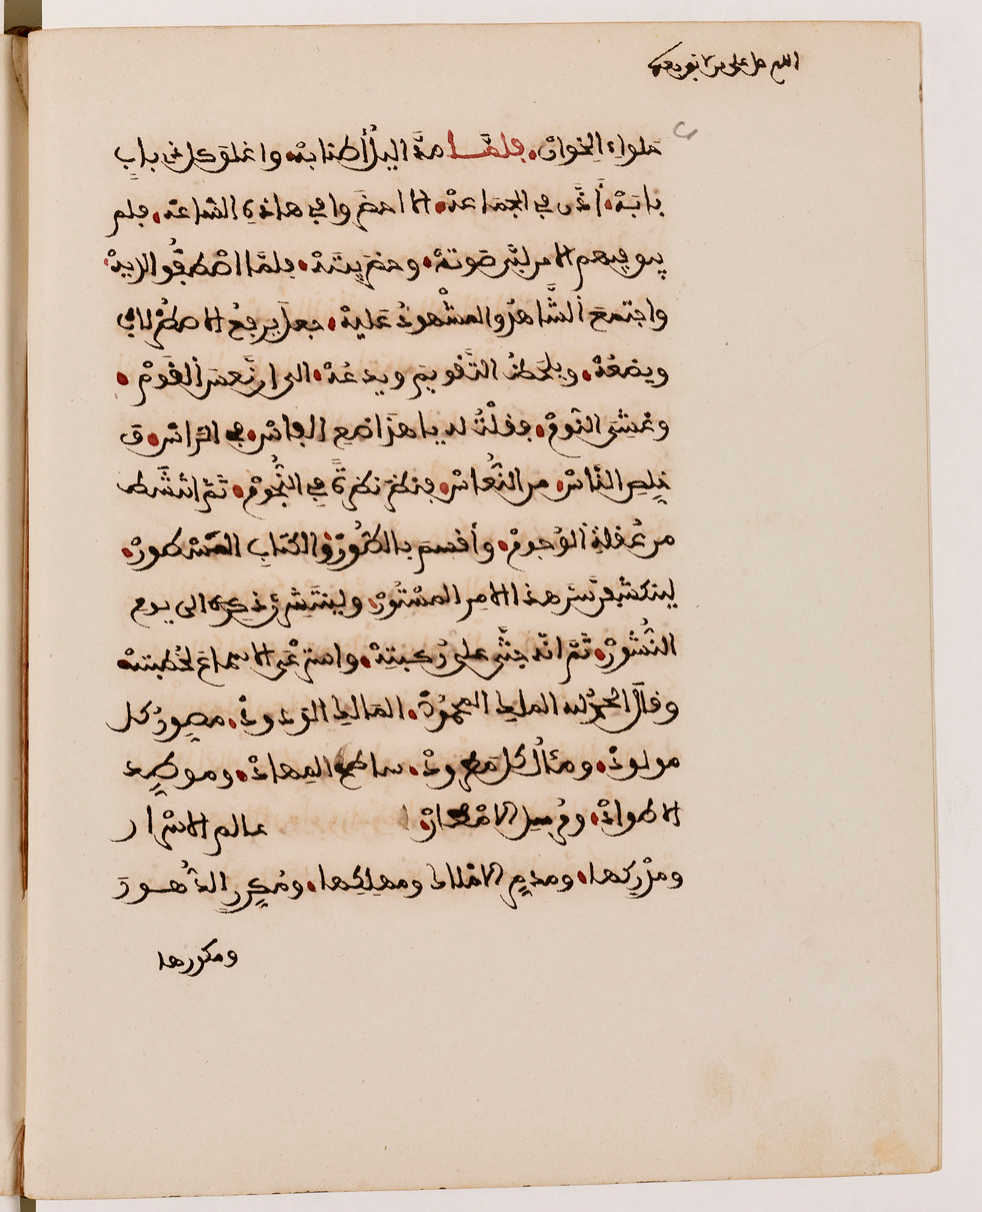 اللهم صل على من لا نبي بعده
حلواء الخوان. فلما مدّ اليلُ أطنابهْ. واغلق كل ذي بابٍ
بابَهْ. أذّن في الجماعهْ. الا احضروا في هاذه الساعهْ. فلم
يبق فيهم الا من لبّى صوتهْ. وحضر بيتهْ. فلمّا اصطفُّوا لديهْ
واجتمع الشَّاهدُ والمشْهودُ عَليهْ. جعل يرفعُ الاصطُرلاب
ويضعُهْ. ويلحَظُ التَّقويمَ ويدعُهْ. الى ان نَعسَ القومْ.
وغشي النومْ. فقلْتُ له يا هذا ضع الفاسْ. في الراسْ. و
خلِص النّاسْ. من النُّعاسْ. فنظر نظرةً في النُّجُومْ. ثمّ انتشَط
من عُقلةِ الوُجومْ. وأقسم بالطُّورْ. والكتابِ المسْطورْ.
لينكشفنّ سِر هذا الامرِ المسْتُورْ. ولينتَشِرنّ ذِكره الى يوم
النُّشُورْ. ثمّ انّه جثَى على رُكبتِهْ. واسترعَى الاسماعَ لخُطبتهْ
وقالَ الحمدُ لله الملِك المحمُودْ. المَالك الوَدودْ. مصوِرُ كل
مولودْ. ومئَالُ كل مَطرودْ. ساطح المِهادْ. وموطِد
الاطوادْ. ومُرسِل الامْطارْ عالم الاسْرار
ومدْرِكها. ومدمِر الامْلاك ومهلِكها. ومُكِورِ الدُّهــورَ
ومكررها